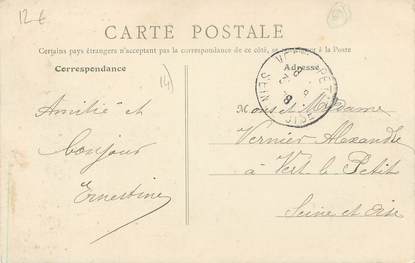 12€
CARTE POSTALE
Certains pays étrangers n'acceptant pas la correspondance de ce côté, se renseigner à la Poste
Correspondance
Adresse
(14)
Amitié et
bonjour
Ernestine
Mons et Madame
Vernier Alexandre
à Vert le Petit
Seine et Oise